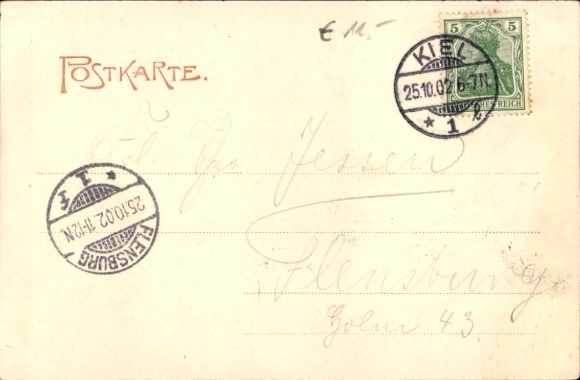 € 11.-
POSTKARTE.
5 5
REICH
KIEL
25.10.02.6-7N.
* 1 l
Jessen
Flensburg
Holm 43
* 1 f
25.10.02.11-12N.
FLENSBURG